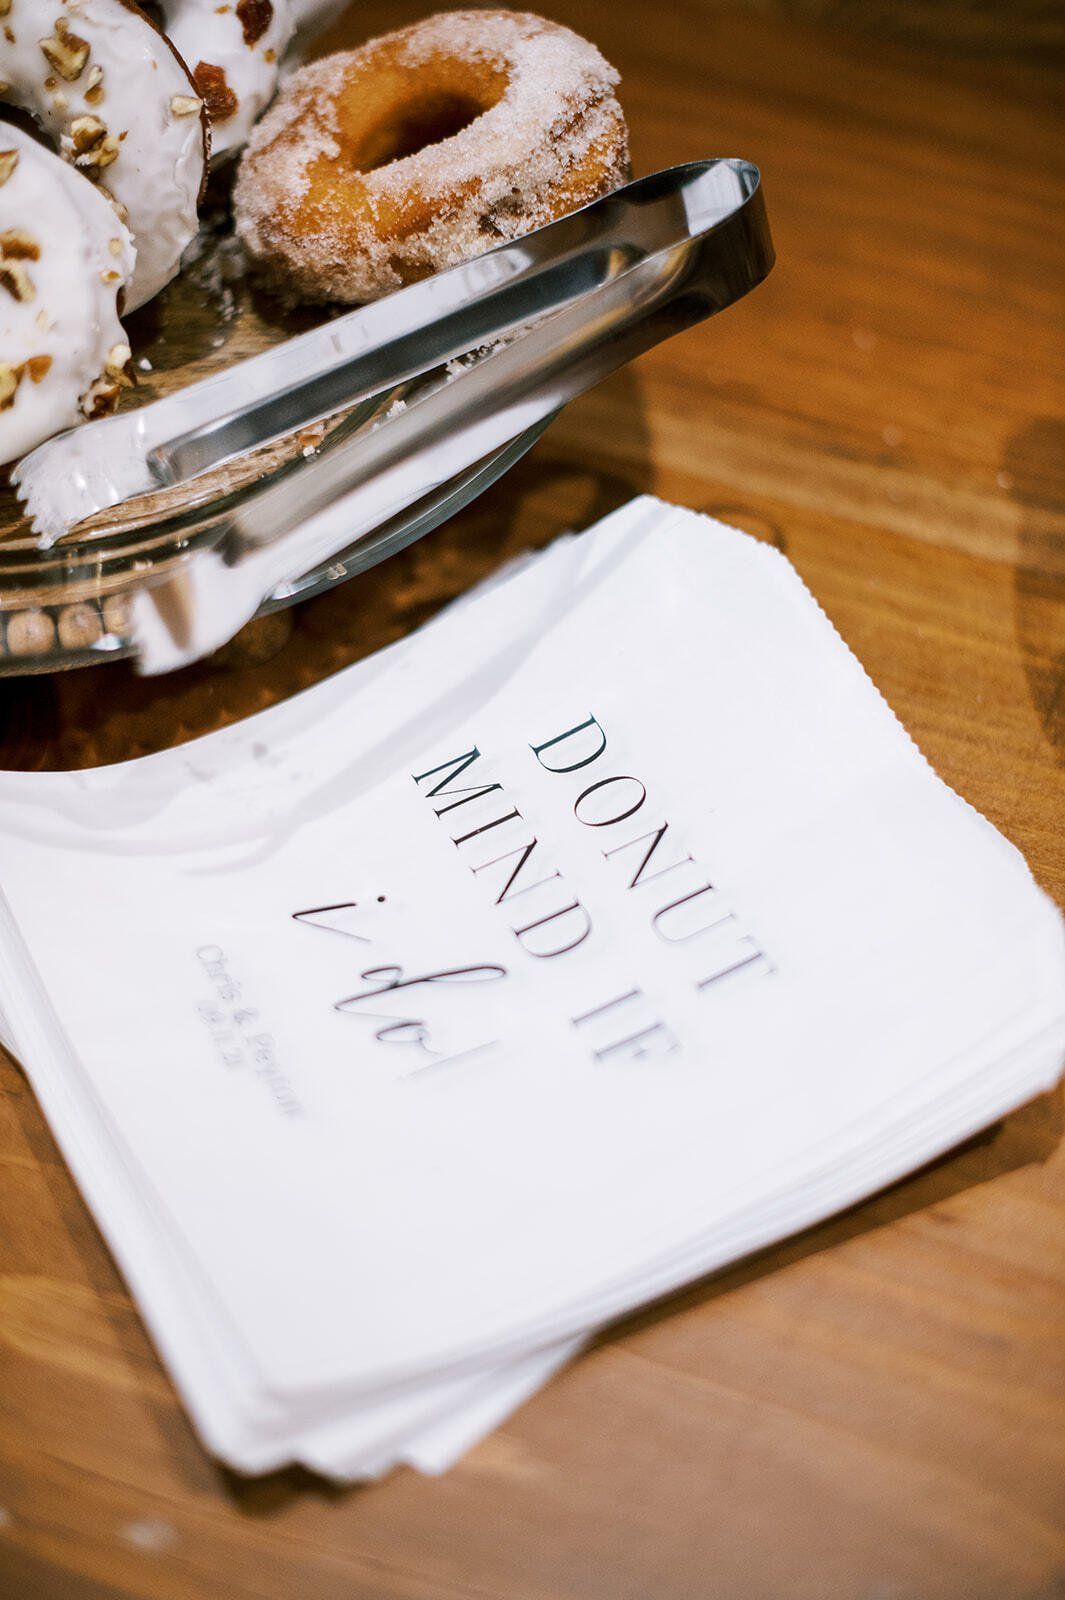 DONUT
MIND IF
i do!
Chris & Peyton
09.11.21